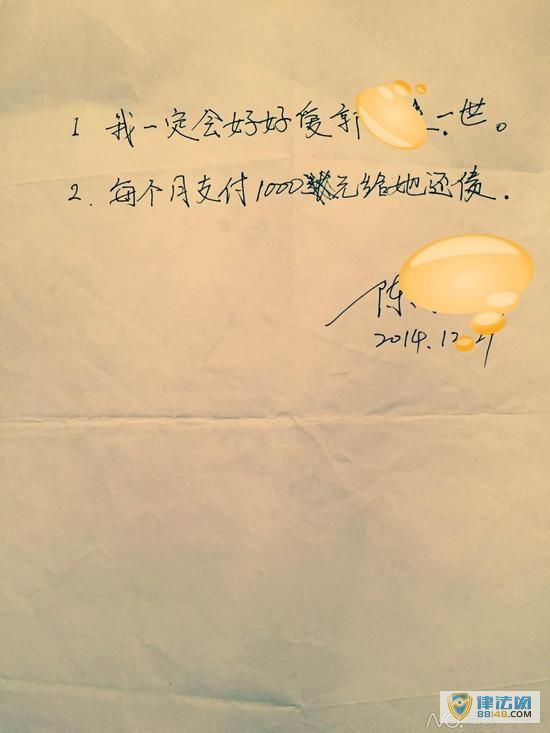 1 我一定会好好爱郭 一世。
2. 每个月支付1000元给她还债.
陈
2014.12.
律法网
88148.COM
NO.